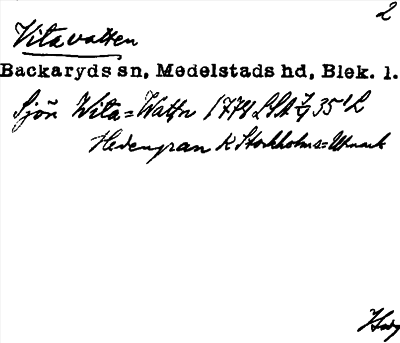 2
Vitavatten
Backaryds sn, Medelstads hd, Blek. l.
Sjön Wita=Wattn 1778 LSA 35
Hedengran K Stockholms=